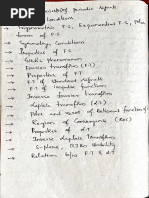 of periodic signals
Conditions
Trigonometric F.S, Exponential F.S, Polar
form of F.S
→ Symmetry Conditions
→ Properties of F.S
→ Gibb's phenomenon
→ Fourier transform (F.T)
→ Properties of F.T
→ F.T of standard signals
→ F.T of singular function
→ Inverse fourier transform
→ laplace transform (L.T)
→ Poles and zeros of Rational function of
→ Region of Convergence (ROC)
→ Properties of L.T
→ Inverse laplace transform
→ S-plane, stability
→ Relation b/n F.T & L.T